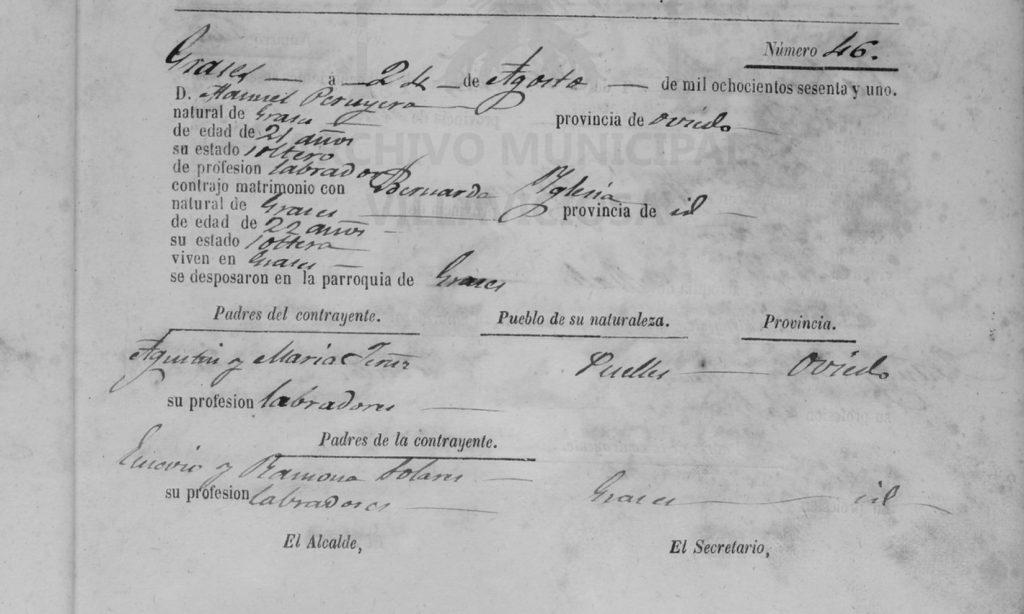 Número 46.
Grases — á — 2 de — de Agosto — de mil ochocientos sesenta y uno.
D. Manuel Peruyera
natural de Grases — provincia de Oviedo
de edad de 21 años
su estado soltero
de profesion labrador
contrajo matrimonio con Bernarda Yglesia
natural de Grases — provincia de id —
de edad de 22 años —
su estado soltera
viven en Grases —
se desposaron en la parroquia de Grases
Padres del contrayente. Pueblo de su naturaleza. Provincia.
Agustin y Maria Puelles — Oviedo
su profesion labradores —
Padres de la contrayente.
y Ramona Solares — Grases — id
su profesion labradores —
El Alcalde, El Secretario,
ARCHIVO MUNICIPAL
VILLAVICIOSA